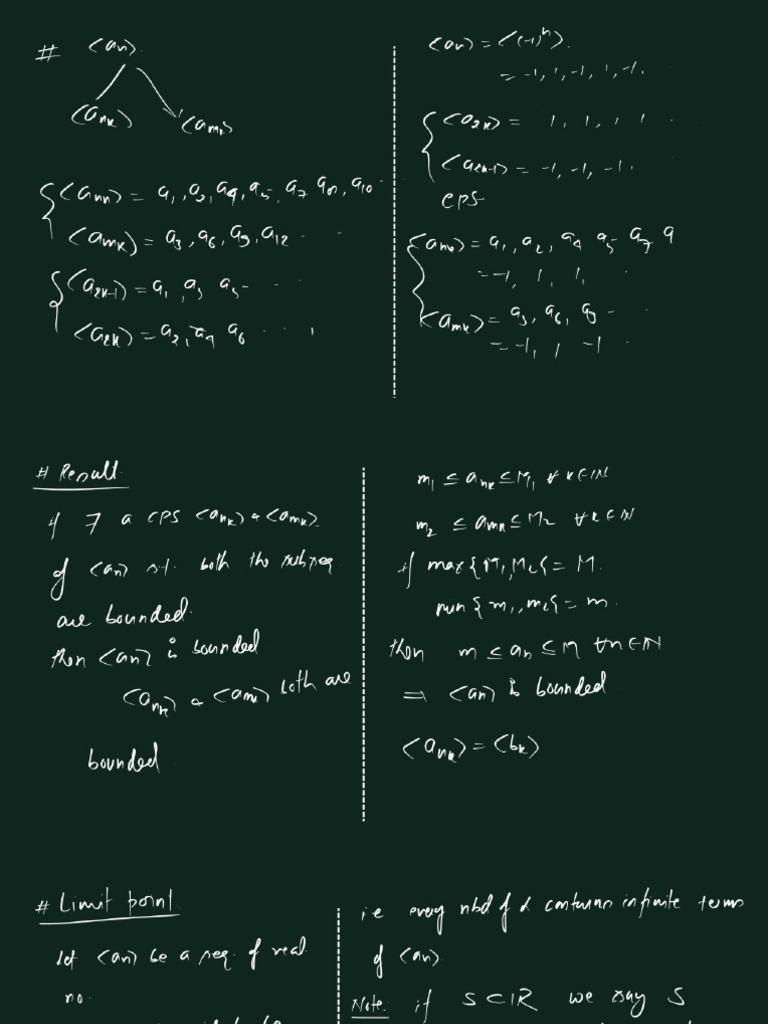 # <an>.
<ank> <amk>
{<ank> = a1, a2, a4, a5, a7 a8, a10 -
<amk> = a3, a6, a9, a12 . .
{<a2k-1> = a1, a3 a5 - . .
<a2k> = a2, a4 a6 . . .
<an> = <(-1)^n>.
= -1, 1, -1, 1, -1.
{<a2k> = 1, 1, 1, 1 .
<a2k-1> = -1, -1, -1.
cps
{<ank> = a1, a2, a4 a5 a7 a
= -1, 1, 1, .
<amk> = a3, a6, a9 - .
= -1, 1 -1 .
# Result.
if ∃ a CPS <ank> & <amk>
of <an> s.t. both the subseq
are bounded.
then <an> is bounded
<ank> & <amk> both are
bounded
m1 ≤ ank ≤ M1 ∀ k∈IN
m2 ≤ amk ≤ M2 ∀k∈N
if max{M1, M2} = M.
min {m1, m2} = m.
then m ≤ an ≤ M ∀n∈N
⇒ <an> is bounded.
<ank> = <bk>
# Limit point.
Let <an> be a seq. of real
no.
i.e every nbd of α contains infinite terms
of <an>
Note: if S⊂IR we say S